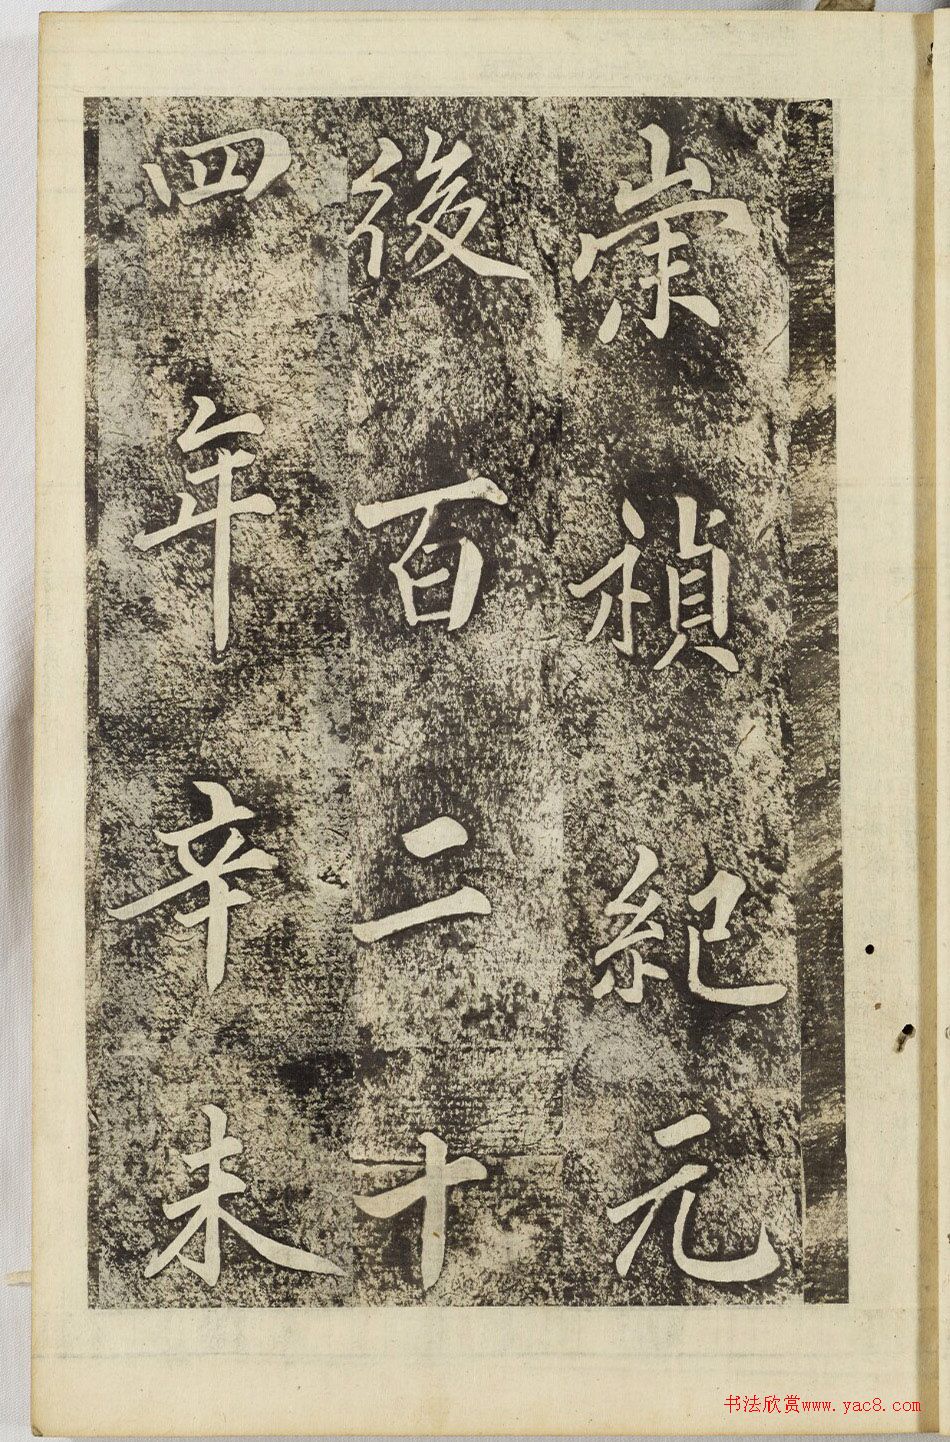 崇禎紀元
後百二十
四年辛未
书法欣赏www.yac8.com